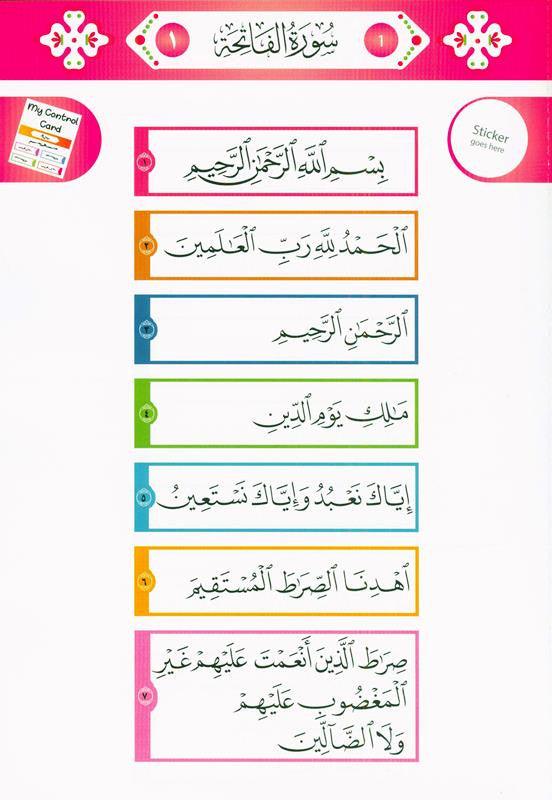 ١ سُورَةُ الفَاتِحَة ١
My Control
Card
Sticker
goes here
بِسْمِ اللَّهِ الرَّحْمَٰنِ الرَّحِيمِ ١
الْحَمْدُ لِلَّهِ رَبِّ الْعَالَمِينَ ٢
الرَّحْمَٰنِ الرَّحِيمِ ٣
مَالِكِ يَوْمِ الدِّينِ ٤
إِيَّاكَ نَعْبُدُ وَإِيَّاكَ نَسْتَعِينُ ٥
اهْدِنَا الصِّرَاطَ الْمُسْتَقِيمَ ٦
صِرَاطَ الَّذِينَ أَنْعَمْتَ عَلَيْهِمْ غَيْرِ
الْمَغْضُوبِ عَلَيْهِمْ ٧
وَلَا الضَّآلِّينَ